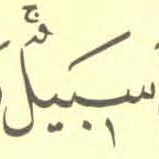 سَبِيْلٌۚ